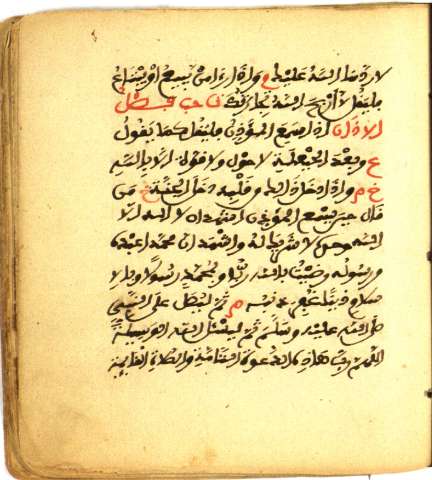 لا ردها الله عليك م واذا رءا من يبيع او يبتاع
فليقل لا اربح الله تجارتك فصل
الاذان اذا سمع المؤذن فليقل كما يقول
ع وبعد الحيعلة لا حول ولا قوة الا بالله
خ م واذا فعل ذلك من قلبه دخل الجنة من
قال حين يسمع المؤذن اشهد ان لا اله الا
الله وحده لا شريك له واشهد ان محمدا عبده
ورسوله رضيت بالله ربا وبمحمد رسولا وبالا
سلام دينا غفر ذنبه م ثم ليصل على النبي
صلى الله عليه وسلم ثم ليسئل الله الوسيلة
اللهم رب هذه الدعوة التامة والصلاة القائمة